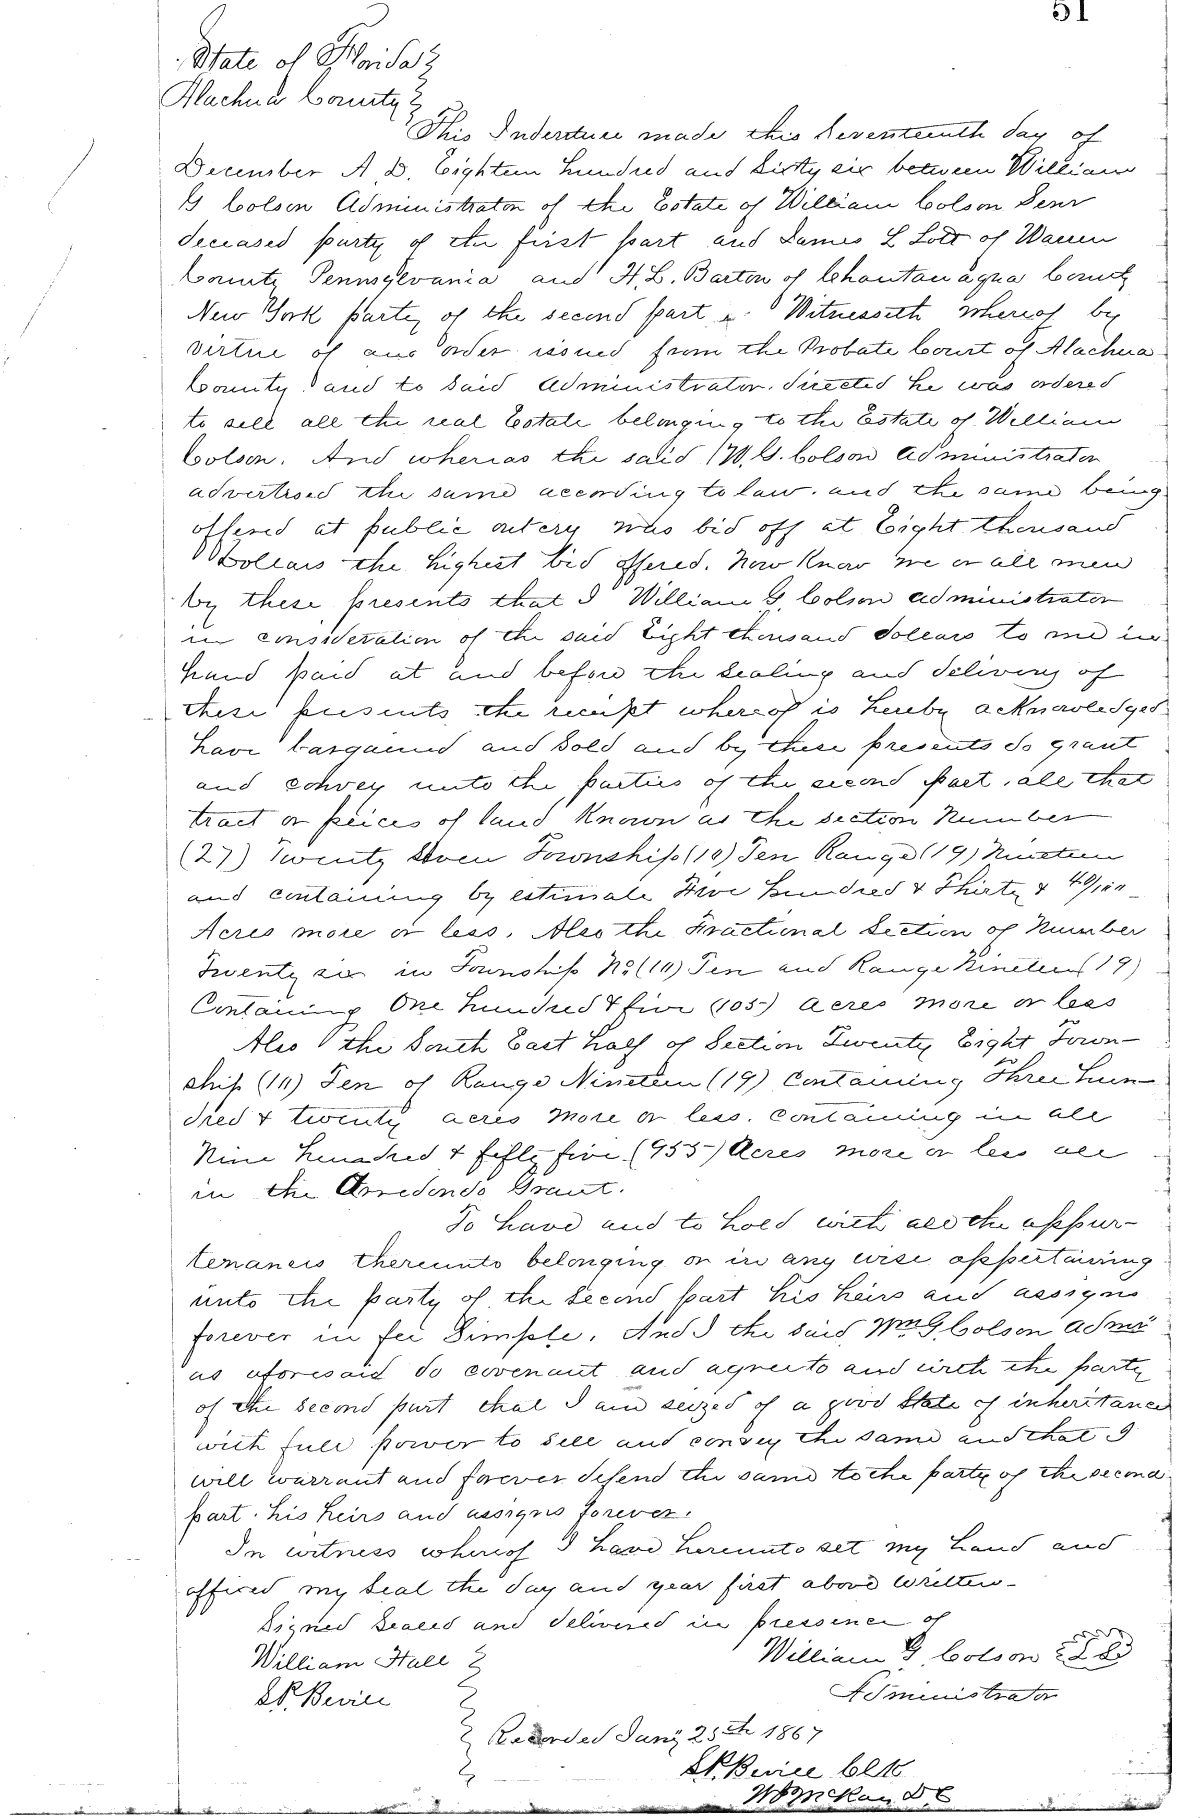 51
State of Florida
Alachua County
This Indenture made this Seventeenth day of
December A. D. Eighteen hundred and Sixty six between William
G Colson Administrator of the Estate of William Colson Senr
deceased party of the first part and James L Lott of Warren
County Pennsylvania and H. L. Barton of Chautauaqua County
New York party of the second part Witnesseth whereof by
virtue of and order issued from the Probate Court of Alachua
County and to Said Administrator directed he was ordered
to sell all the real Estate belonging to the Estate of William
Colson. And wherias the said W. G. Colson Administrator
advertised the same according to law. and the same being
offered at public outcry was bid off at Eight thousand
Dollars the highest bid offered. Now Know we or all men
by these presents that I William G. Colson administrator
in consideration of the said Eight thousand dollars to me in
hand paid at and before the Sealing and delivery of
these presents the receipt whereof is hereby acknowledged
have bargained and Sold and by these presents do grant
and convey unto the parties of the second part all that
tract or peices of land Known as the section Number
(27) Twenty Seven Township (10) Ten Range (19) Nineteen
and containing by estimate Five hundred & Thirty & 40/100
Acres more or less. Also the Fractional Section of Number
Twenty six in Township No (10) Ten and Range Nineteen (19)
Containing One hundred & five (105) acres more or less
Also the South East half of Section Twenty Eight Town-
ship (10) Ten of Range Nineteen (19) Containing Three hun-
dred & twenty acres more or less. containing in all
Nine hundred & fifty five (955) Acres more or less all
in the Arredondo Grant.
To have and to hold with all the appur-
tenances thereunto belonging or in any wise appertaining
unto the party of the Second part his heirs and assigns
forever in fee Simple. And I the said Wm G. Colson Admr
as aforesaid do covenant and agree to and with the party
of the second part that I am seized of a good State of inheritance
with full power to Sell and convey the same and that I
will warrant and forever defend the same to the party of the second
part his heirs and assigns forever.
In witness whereof I have hereunto set my hand and
affixed my Seal the day and year first above written-
Signed Sealed and delivered in pressence of
William Hall William G. Colson L S
S.P. Bevill Administrator
Recorded Jany 25th 1867
S.P. Bevill Clk
McKay D. C